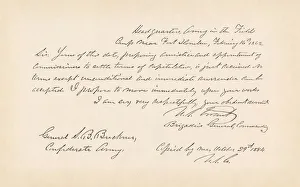 Head Quarters, Army in the Field
Camp Near Fort Donelson, February 16th 1862
Sir. Yours of this date, proposing armistice and appointment of
Commissioners to settle terms of Capitulation, is just received. No
terms except unconditional and immediate surrender can be
accepted. I propose to move immediately upon your works.
I am, sir, very respectfully, your obedient servant,
U. S. Grant
Brigadier General, Commanding
General S. B. Buckner,
Confederate Army.
Copied by me, October 29th 1884
U. S. G.